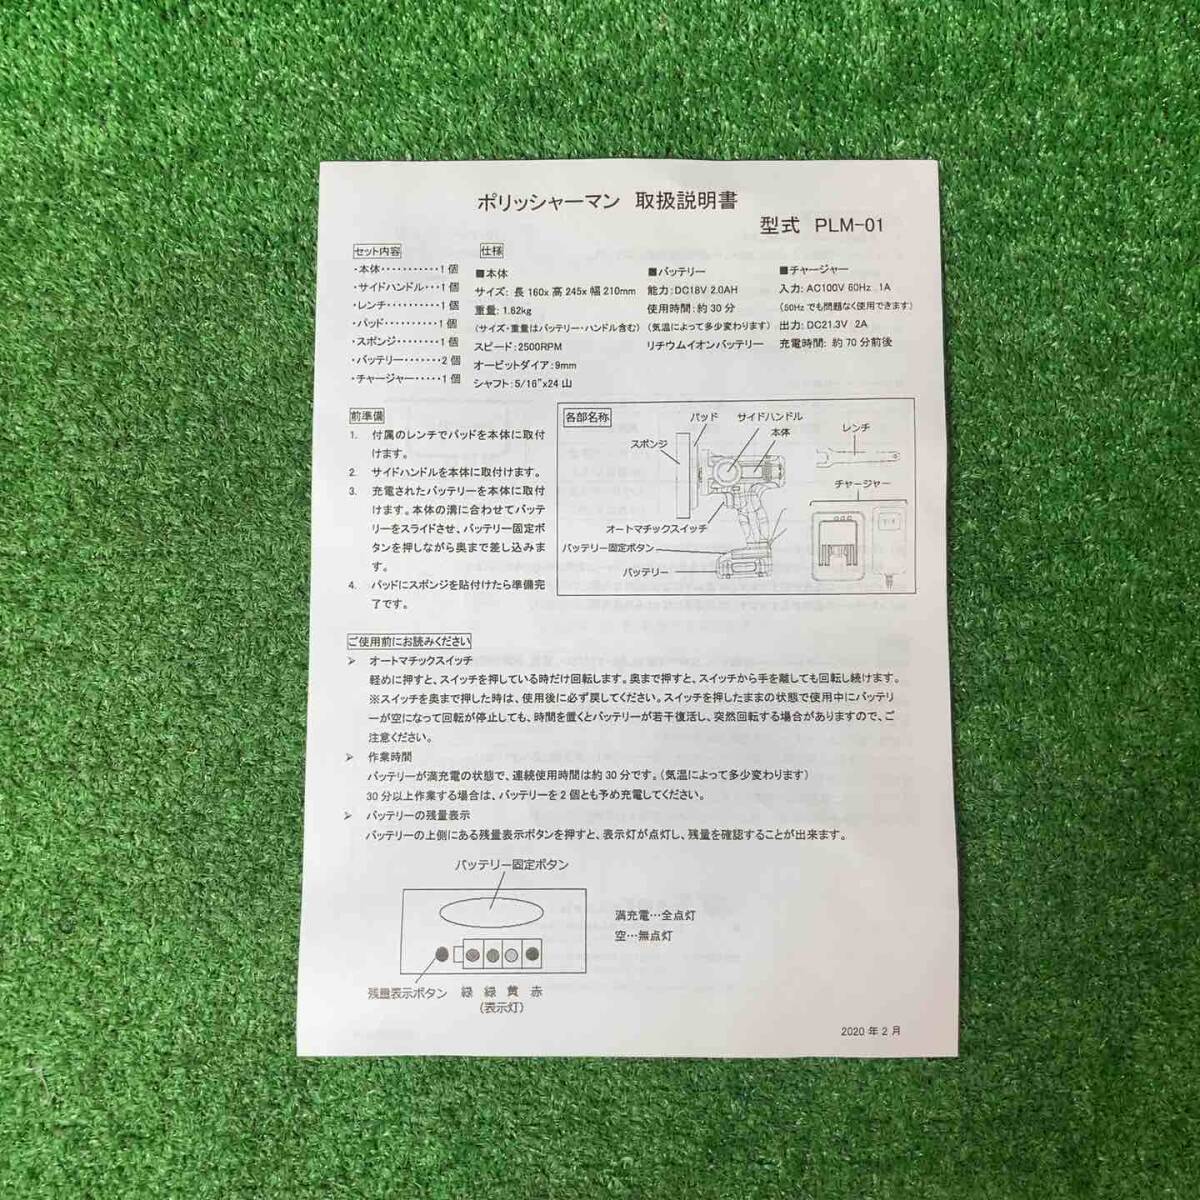 ポリッシャーマン 取扱説明書
型式 PLM-01
セット内容
・本体・・・・・・・・・・・1個
・サイドハンドル・・・1個
・レンチ・・・・・・・・・・1個
・パッド・・・・・・・・・・1個
・スポンジ・・・・・・・・1個
・バッテリー・・・・・・・2個
・チャージャー・・・・・1個
仕様
■本体
サイズ: 長 160x 高 245x 幅 210mm
重量: 1.62kg
(サイズ・重量はバッテリー・ハンドル含む)
スピード:2500RPM
オービットダイア:9mm
シャフト:5/16"x24 山
■バッテリー
能力:DC18V 2.0AH
使用時間:約 30 分
(気温によって多少変わります)
リチウムイオンバッテリー
■チャージャー
入力:AC100V 60Hz 1A
(50Hz でも問題なく使用できます)
出力:DC21.3V 2A
充電時間: 約 70 分前後
前準備
1. 付属のレンチでパッドを本体に取付
けます。
2. サイドハンドルを本体に取付けます。
3. 充電されたバッテリーを本体に取付
けます。本体の溝に合わせてバッテ
リーをスライドさせ、バッテリー固定ボ
タンを押しながら奥まで差し込みま
す。
4. パッドにスポンジを貼付けたら準備完
了です。
各部名称
パッド
サイドハンドル
スポンジ
本体
レンチ
チャージャー
オートマチックスイッチ
バッテリー固定ボタン
バッテリー
ご使用前にお読みください
➢ オートマチックスイッチ
軽めに押すと、スイッチを押している時だけ回転します。奥まで押すと、スイッチから手を離しても回転し続けます。
※スイッチを奥まで押した時は、使用後に必ず戻してください。スイッチを押したままの状態で使用中にバッテリ
ーが空になって回転が停止しても、時間を置くとバッテリーが若干復活し、突然回転する場合がありますので、ご
注意ください。
➢ 作業時間
バッテリーが満充電の状態で、連続使用時間は約 30 分です。(気温によって多少変わります)
30 分以上作業する場合は、バッテリーを 2 個とも予め充電してください。
➢ バッテリーの残量表示
バッテリーの上側にある残量表示ボタンを押すと、表示灯が点灯し、残量を確認することが出来ます。
バッテリー固定ボタン
満充電…全点灯
空…無点灯
残量表示ボタン 緑 緑 黄 赤
(表示灯)
2020 年 2 月